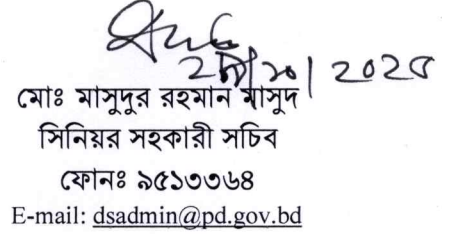 ২৮/১০/২০২৫
মোঃ মাসুদুর রহমান মাসুদ
সিনিয়র সহকারী সচিব
ফোনঃ ৯৫১৩৩৬৪
E-mail: dsadmin@pd.gov.bd